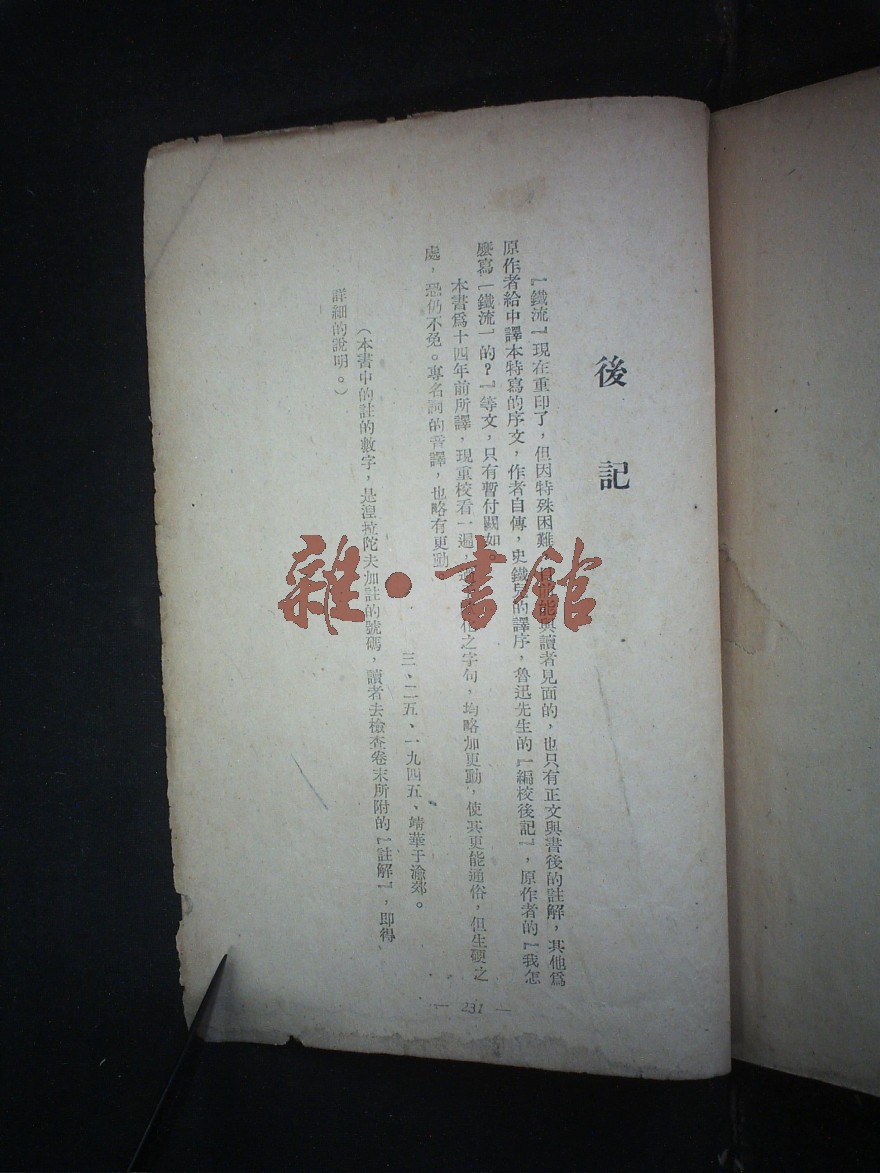 後記
『鐵流』現在重印了，但因特殊困難，能與讀者見面的，也只有正文與書後的註解，其他爲
原作者給中譯本特寫的序文，作者自傳，史鐵兒的譯序，魯迅先生的『編校後記』，原作者的『我怎
麼寫『鐵流』的？』等文，只有暫付闕如。
本書爲十四年前所譯，現重校看一遍，化之字句，均略加更動，使其更能通俗，但生硬之
處，恐仍不免。專名詞的音譯，也略有更動
三、二五、一九四五、靖華于渝郊。
（本書中的註的數字，是涅拉陀夫加註的號碼，讀者去檢查卷末所附的『註解』，即得
詳細的說明。）
— 231 —
雜·書館